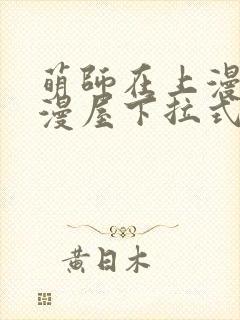 萌師在上漫
漫屋下拉式
黄日木